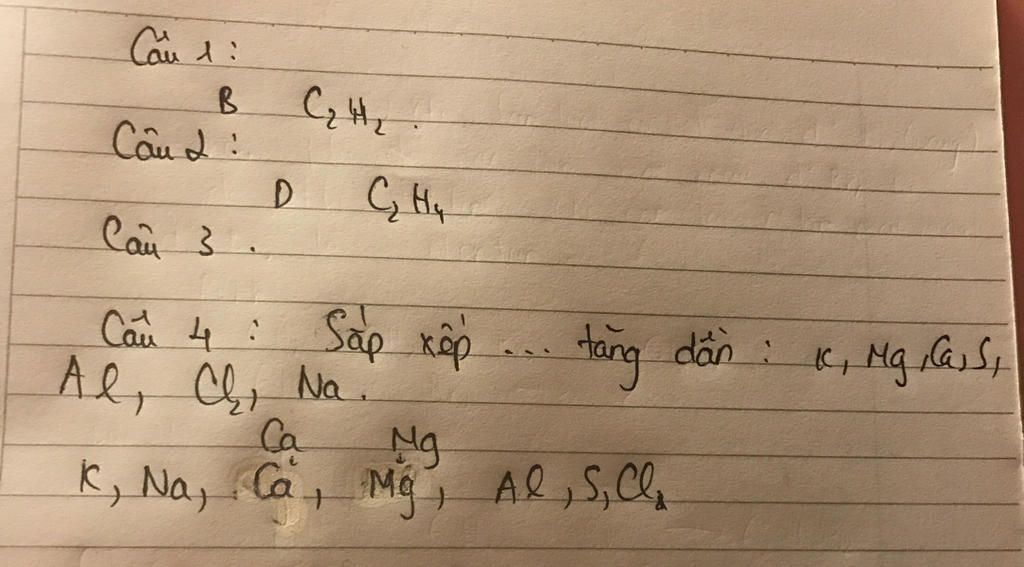 Câu 1 :
B C₂H₂.
Câu 2 :
D C₂H₄
Câu 3 .
Câu 4 : Sắp xếp ... tăng dần : K, Mg, Ca, S,
Al, Cl₂, Na.
Ca Mg
K, Na, Ca, Mg, Al, S, Cl₂